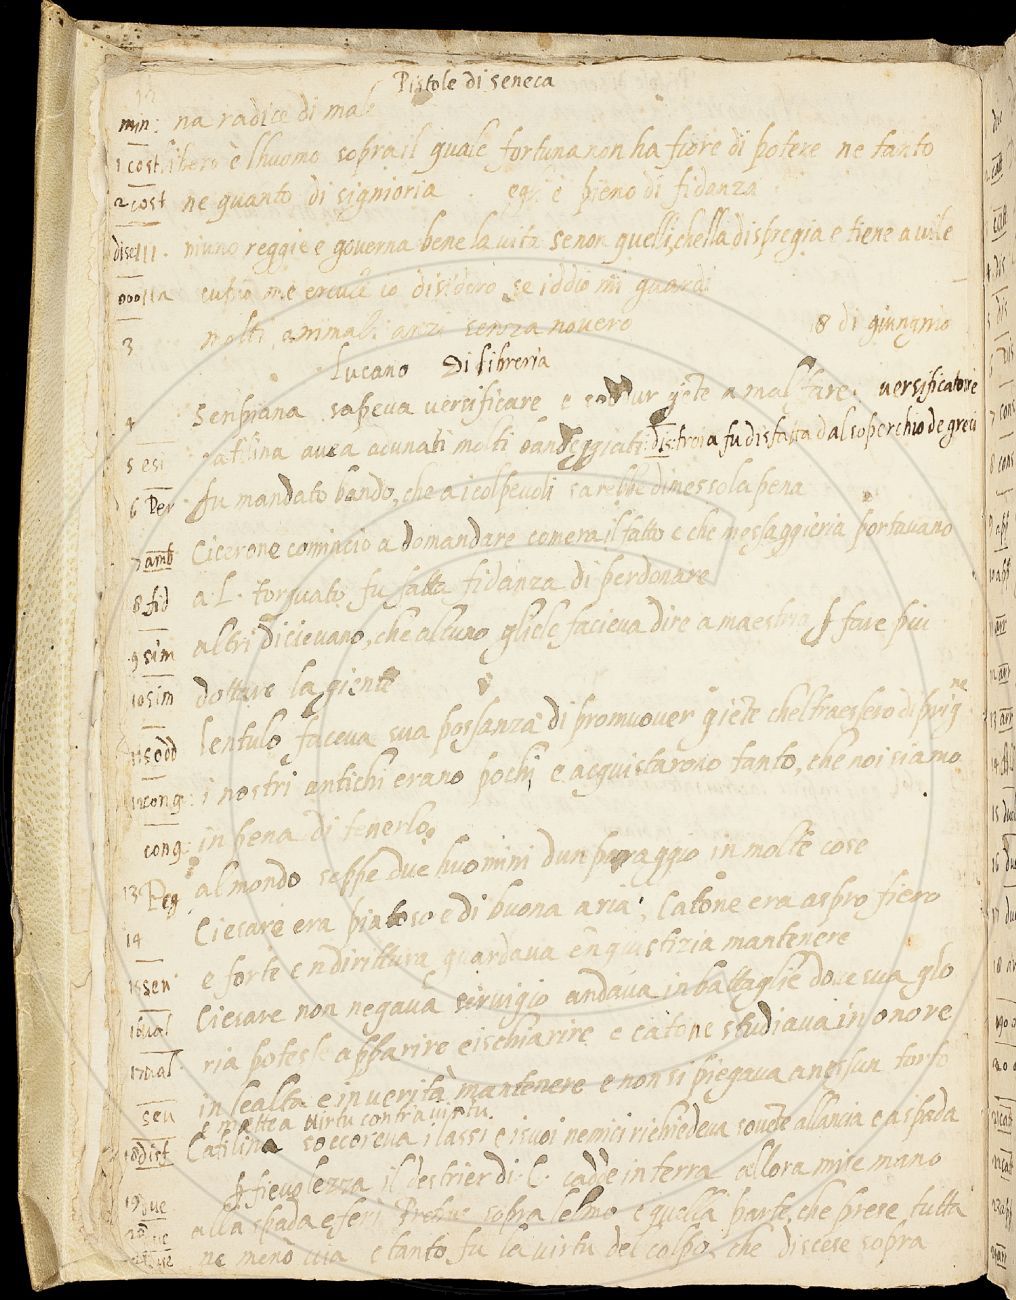 Pistole di seneca
min: na radice di male
1 cost libero è lhuomo sopra il quale fortuna non ha fiore di potere ne tanto
2 cost ne quanto di signioria e pieno di fidanza
disc niuno reggie e governa bene la vita se non quelli, chella dispregia e tiene a vile
me ercule io disidero se iddio mi guardi
3 molti animali anzi senza novero 8 di giungnio
Lucano Di libreria
4 Sempiana sapeva versificare e giete a mal fare. versificatore
5 esi Catilina avea avnati molti bandeggiati. dis: troia fu disfatta dal soperchio de greci
6 Per fu mandato bando, che a i colpevoli sarebbe dimesso la pena
7 amb Cicerone comincio a domandare comera il fatto e che messaggieria portavano
8 fid a L. torquato fu fatta fidanza di perdonare
9 sim altri dicievano, che alcuno gliele facieva dire a maestria p fare piu
10 sim dottare la giente
11 sodd lentulo faceva sua possanza di promuover giete chel traessero di prig
ne
12 cong: i nostri antichi erano pochi e acquistarono tanto, che noi siamo
cong: in pena di tenerlo
13 Peg al mondo seppe due huomini dun paraggio in molte cose
14 Ciesare era piatoso e di buona aria; Catone era aspro fiero
15 sen e forte e n dirittura guardava en giustizia mantenere
16 ual Ciesare non negava servigio andava in battaglie dove sua glo
17 ual ria potesse apparire e ischiarire e catone studiava in onore
sen in lealta e in verità mantenere e non si piegava a nessun torto
e mettea virtu contra virtu
18 dist Catilina soccoreva i lassi e i suoi nemici richiedeva sovete allancia e a spada
p fievolezza il destrier di L. cadde in terra allora mise mano
19 ave alla spada e feri sopra lelmo e quella parte, che prese tutta
20 ne menò via e tanto fu la virtu del colpo, che discese sopra